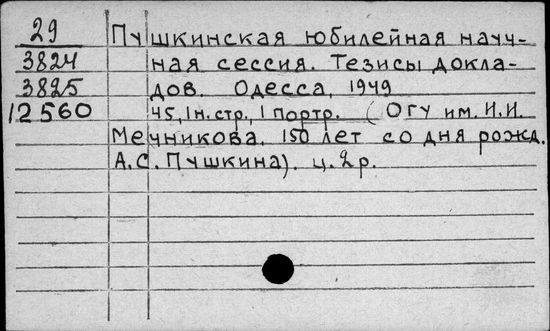 29 Пушкинская юбилейная науч-
3824 ная сессия. Тезисы докла-
3825 дов. Одесса, 1949
12560 45, 1н.стр., 1 портр. (ОГУ им. И.И.
Мечникова. 150 лет со дня рожд.
А.С. Пушкина). ц. 2р.